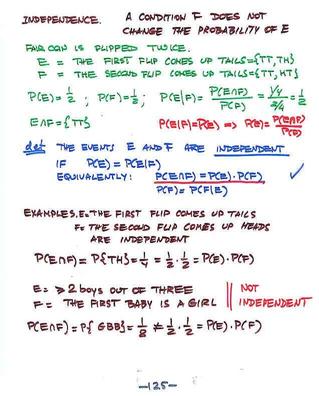 INDEPENDENCE. A CONDITION F DOES NOT
CHANGE THE PROBABILITY OF E
FAIR COIN IS FLIPPED TWICE.
E = THE FIRST FLIP COMES UP TAILS={TT,TH}
F = THE SECOND FLIP COMES UP TAILS={TT,HT}
P(E)=1/2 ; P(F)=1/2; P(E|F)=P(E∩F)/P(F)=1/4/2/4=1/2
E∩F={TT} P(E|F)=P(E) ⇒ P(E)=P(E∩F)/P(F)
def THE EVENTS E AND F ARE INDEPENDENT
IF P(E)=P(E|F)
EQUIVALENTLY: P(E∩F)=P(E)·P(F) ✓
P(F)=P(F|E)
EXAMPLES. E=THE FIRST FLIP COMES UP TAILS
F=THE SECOND FLIP COMES UP HEADS
ARE INDEPENDENT
P(E∩F)=P{TH}=1/4=1/2·1/2=P(E)·P(F)
E= ≥2 boys OUT OF THREE
F= THE FIRST BABY IS A GIRL || NOT INDEPENDENT
P(E∩F)=P{GBB}=1/8≠1/2·1/2=P(E)·P(F)
-125-